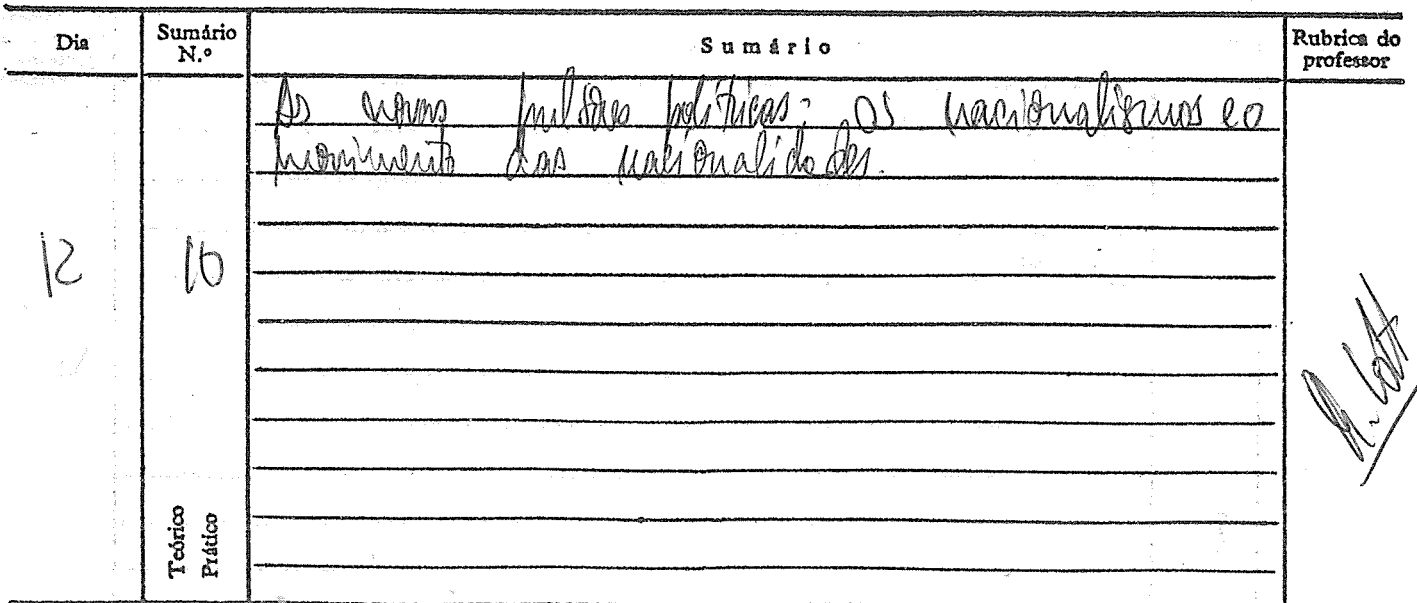 Dia
Sumário N.º
Sumário
Rubrica do professor
As novas pulsões políticas: os nacionalismos e o
movimento das nacionalidades.
12
10
Teórico
Prático